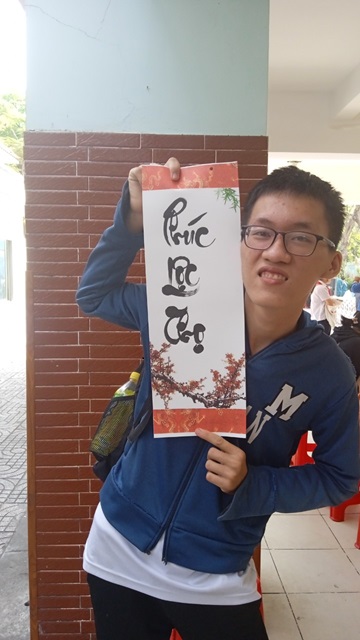 Phúc
Lộc
Thọ
M
W